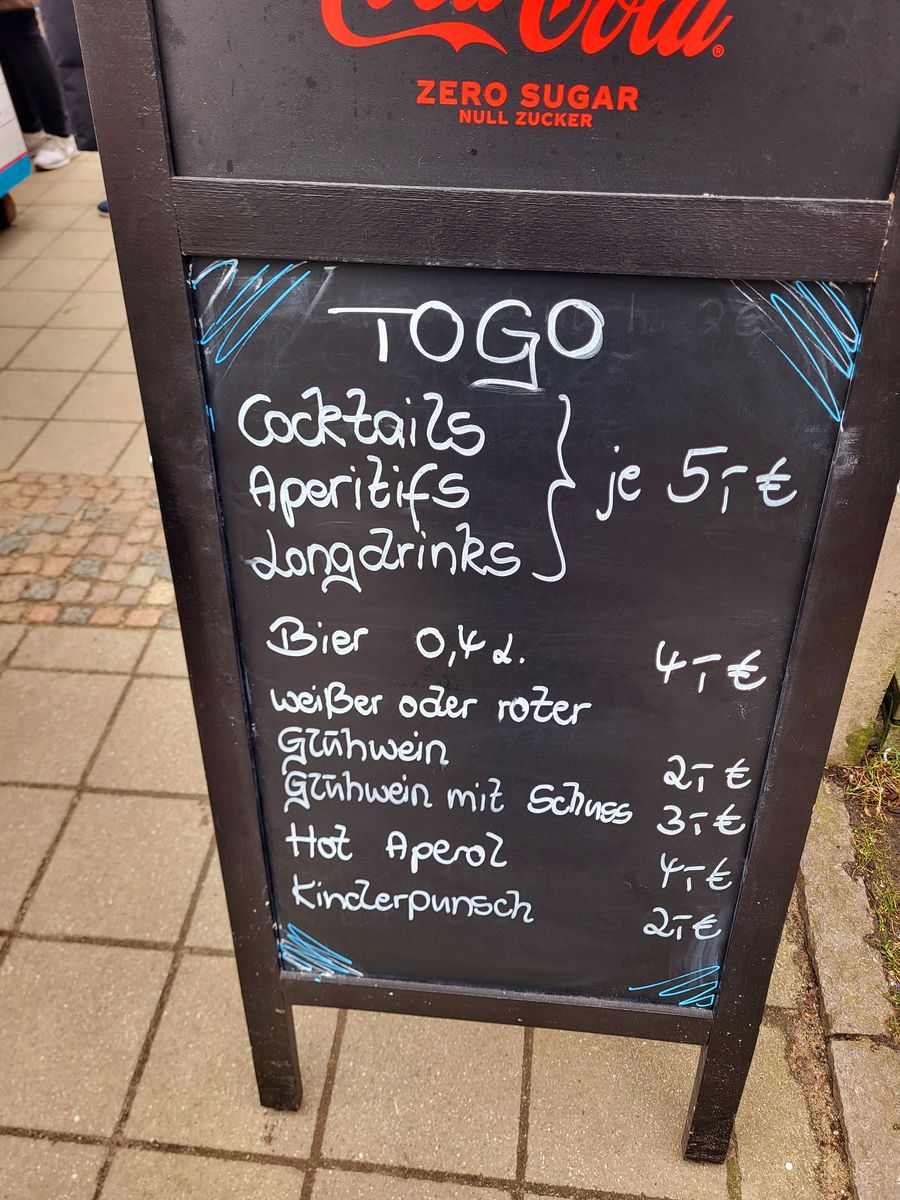 Coca-Cola®
ZERO SUGAR
NULL ZUCKER
TOGO
Cocktails
Aperitifs
Longdrinks
je 5,- €
Bier 0,4 l. 4,- €
weißer oder roter
Glühwein 2,- €
Glühwein mit Schuss 3,- €
Hot Aperol 4,- €
Kinderpunsch 2,- €